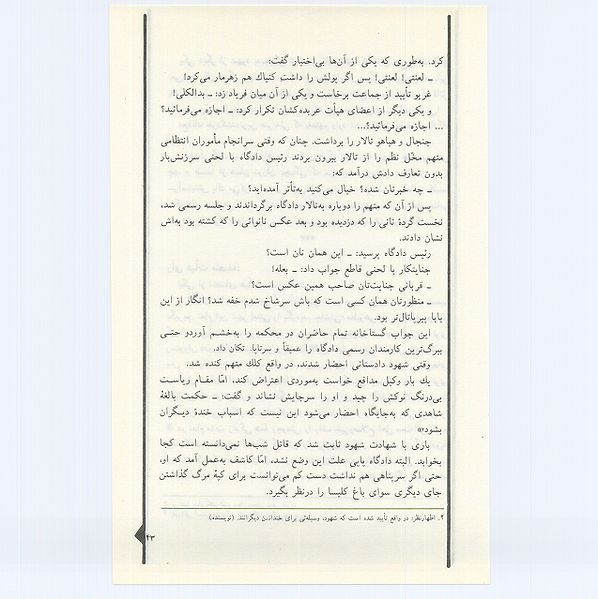 کرد. به‌طوری که یکی از آن‌ها بی‌اختیار گفت:
ــ لعنتی! لعنتی! پس اگر پولش را داشت کنیاك هم زهرمار می‌کرد!
غریو تأیید از جماعت برخاست و یکی از آن میان فریاد زد: ــ بدالکلی!
و یکی دیگر از اعضای هیأت عربده‌کشان تکرار کرد: ــ اجازه می‌فرمائید؟
... اجازه می‌فرمائید؟...
جنجال و هیاهو تالار را برداشت. چنان که وقتی سرانجام مأموران انتظامی
متهم مخّل نظم را از تالار بیرون بردند رئیس دادگاه با لحنی سرزنش‌بار
بدون تعارف دادش درآمد که:
ــ چه خبرتان شده؟ خیال می‌کنید به‌تآتر آمده‌اید؟
پس از آن که متهم را دوباره به‌تالار دادگاه برگرداندند و جلسه رسمی شد،
نخست گردهٔ نانی را که دزدیده بود و بعد عکس نانوائی را که کشته بود به‌اش
نشان دادند.
رئیس دادگاه پرسید: ــ این همان نان است؟
جنایتکار با لحنی قاطع جواب داد: ــ بعله!
ــ قربانی جنایت‌تان صاحب همین عکس است؟
ــ منظورتان همان کسی است که باش سرشاخ شدم خفه شد؟ انگار از این
بابا بیریاتال‌تر بود.
این جواب گستاخانه تمام حاضران در محکمه را به‌خشم آورد‌و حتی
بیرگ‌ترین کارمندان رسمی دادگاه را عمیقاً و سرتاپا. تکان داد.
وقتی شهود دادستانی احضار شدند، در واقع کلك متهم کنده شد.
یك بار وکیل مدافع خواست به‌موردی اعتراض کند، امّا مقـام ریاسـت
بی‌درنگ نوکش را چید و او را سرجایش نشاند و گفت: ــ حکمت بالغهٔ
شاهدی که به‌جایگاه احضار می‌شود این نیست که اسباب خندهٔ دیـگران
بشود»
باری با شهادت شهود ثابت شد که قاتل شب‌ها نمی‌دانسته است کجا
بخوابد. البته دادگاه پاپی علت این وضع نشد، امّا کاشف به‌عمل آمد که او،
حتی اگر سرپناهی هم نداشت دست کم می‌توانست برای کپهٔ مرگ گذاشتن
جای دیگری سوای باغ کلیسا را درنظر بگیرد.
۲. اظهارنظر: در واقع تأیید شده است که شهود، وسیله‌ئی برای خنداندن دیگرانند. (نویسنده)
۴۳